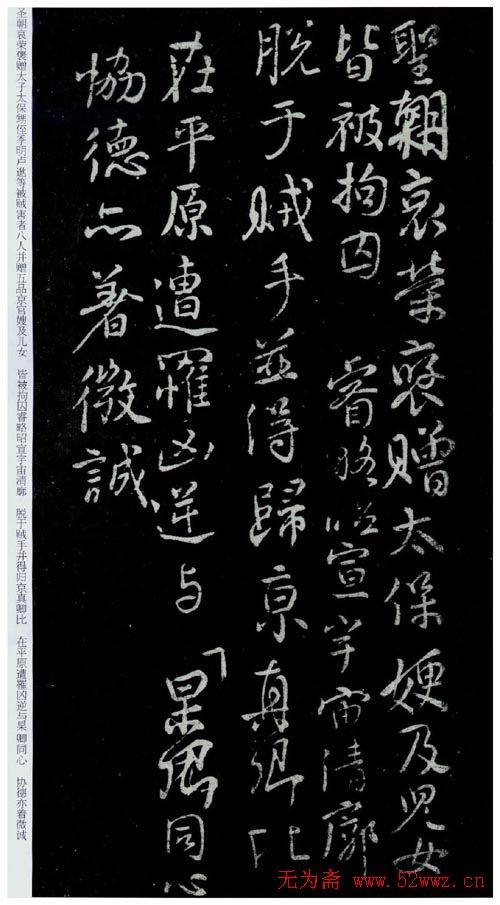 聖朝哀榮褒贈太保嫂及兒女
皆被拘囚 睿略昭宣宇宙清廓
脫于賊手並得歸京真卿比
在平原遭罹凶逆与杲卿同心
協德亦著微誠
圣朝哀荣褒赠太子太保甥侄季明卢逖等被贼害者八人并赠五品京官嫂及儿女 皆被拘囚睿略昭宣宇宙清廓 脱于贼手并得归京真卿比 在平原遭罹凶逆与杲卿同心 协德亦着微诚
无为斋 www.52wwz.cn